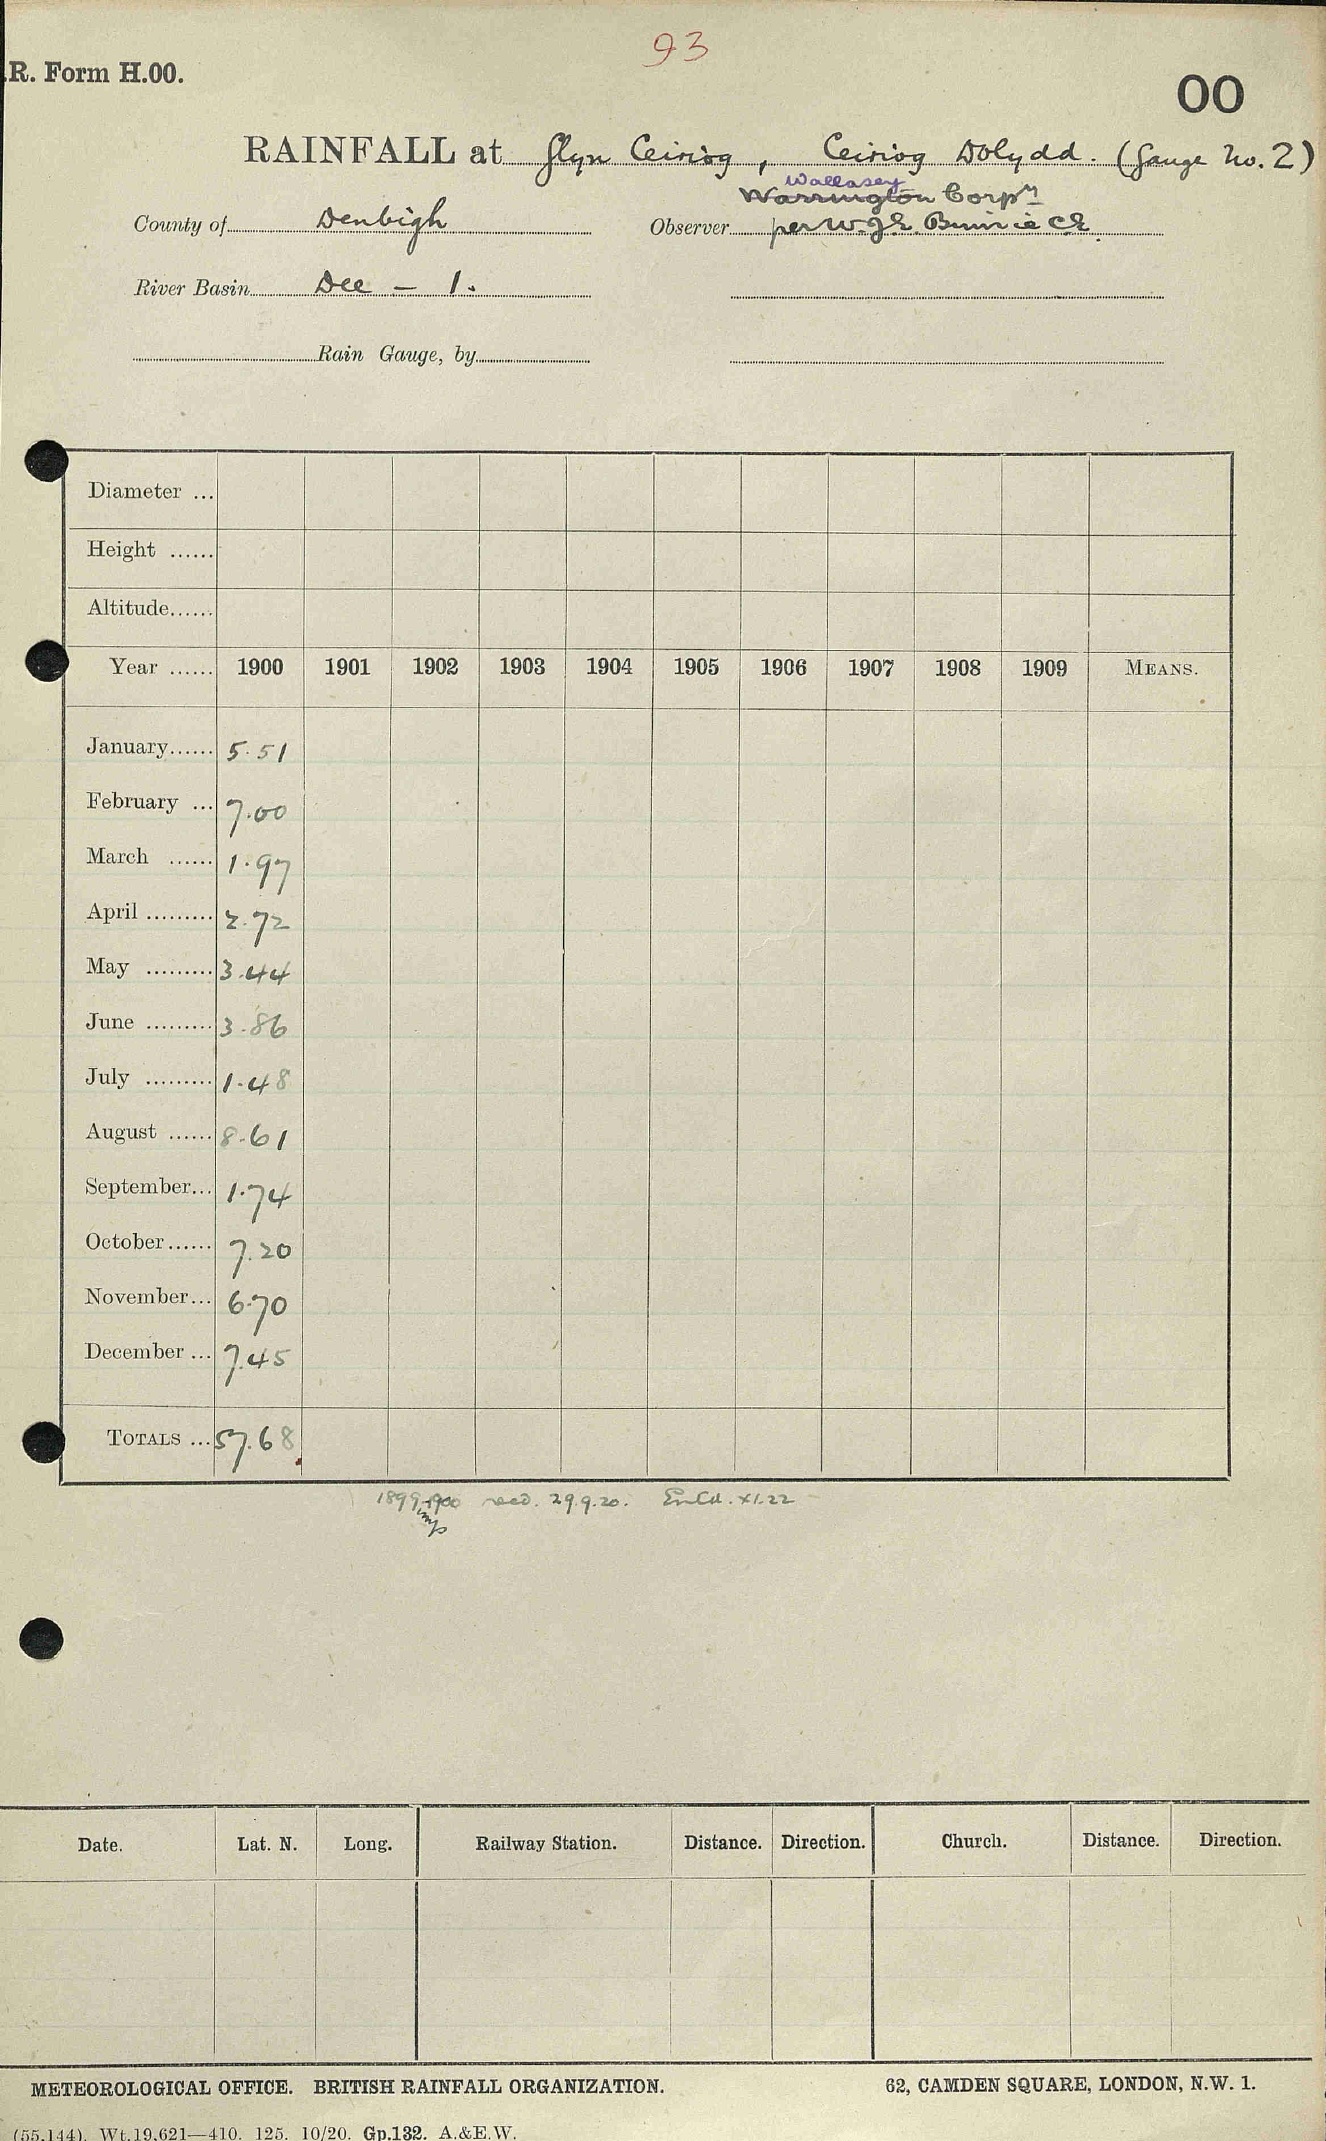 93
R. Form H.00.
00
RAINFALL at Glyn Ceiriog, Ceiriog Dolydd. (Gauge No. 2)
Wallasey
Warrington Corpn
County of Denbigh
Observer per W.J.E. Binnie CE.
River Basin Dee — 1.
Rain Gauge, by
Diameter ...
Height ......
Altitude......
Year ...... 1900 1901 1902 1903 1904 1905 1906 1907 1908 1909 MEANS.
January...... 5.51
February ... 7.00
March ...... 1.97
April ......... 2.72
May ......... 3.44
June ......... 3.86
July ......... 1.48
August ...... 8.61
September... 1.74
October...... 7.20
November... 6.70
December ... 7.45
TOTALS ... 57.68
1899-1900 recd. 29.9.20. Entd. XI.22
Date. Lat. N. Long. Railway Station. Distance. Direction. Church. Distance. Direction.
METEOROLOGICAL OFFICE. BRITISH RAINFALL ORGANIZATION. 62, CAMDEN SQUARE, LONDON, N.W. 1.
(55,144). Wt.19,621—410. 125. 10/20. Gp.132. A.&E.W.